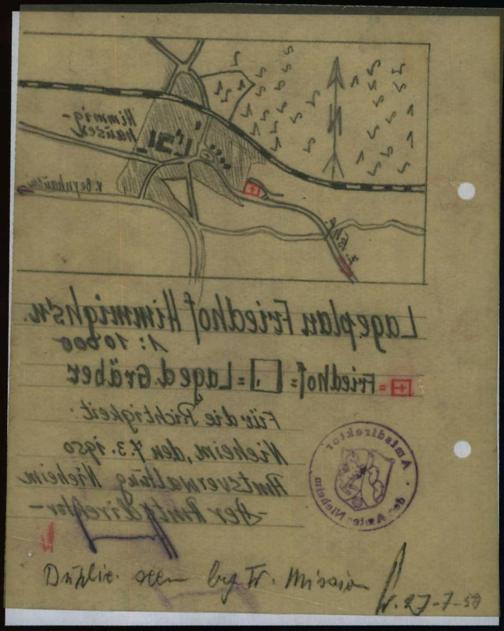 Himmig-
hausen
n. Bernhausen
Lageplan Friedhof Himmighs'n.
1:10000
= Friedhof: = Lage d. Gräber
Für die Richtigkeit:
Nieheim, den 7.3.1950
Amtsverwaltung Nieheim
- Der Amtsdirektor -
Amtsdirektor
des Amtes Nieheim
Duplic. seen by Fr. Mission
27-7-50